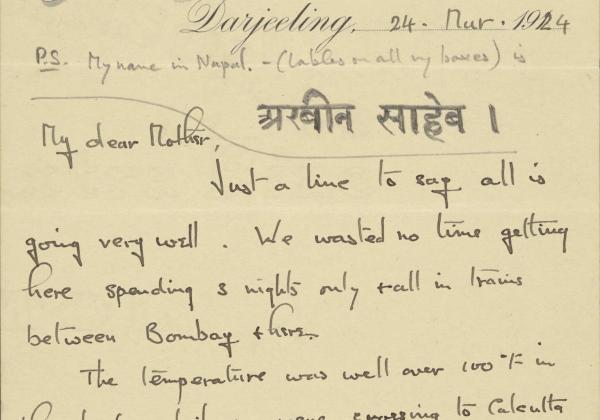 Darjeeling, 24. Mar. 1924
P.S. My name in Nepal. - (lables on all my boxes) is
अरबीन साहेब ।
My dear Mother,
Just a line to say all is
going very well. We wasted no time getting
here spending 3 nights only & all in trains
between Bombay & here.
The temperature was well over 100°F in
crossing to Calcutta